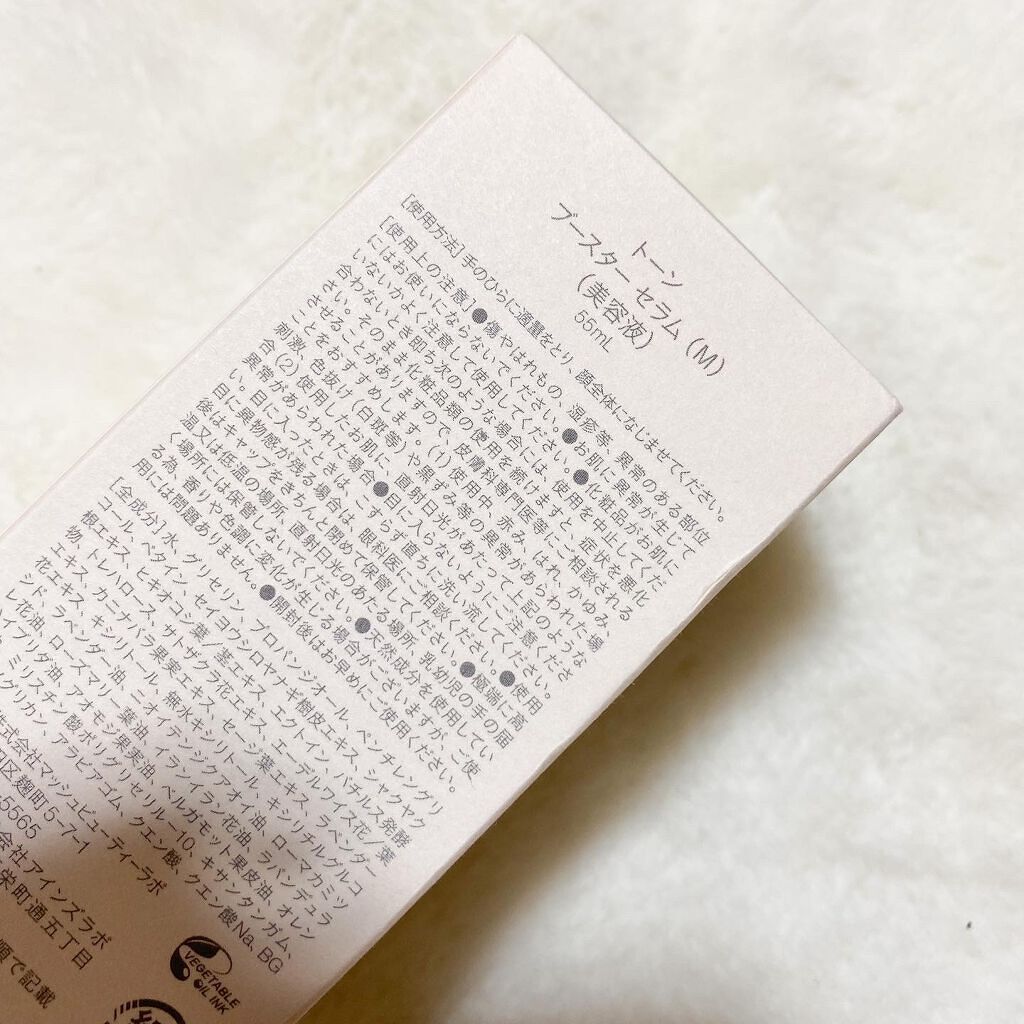 トーン
ブースター セラム (M)
(美容液)
55mL
[使用方法]手のひらに適量をとり、顔全体になじませてください。
[使用上の注意]●傷やはれもの、湿疹等、異常のある部位
にはお使いにならないでください。●お肌に異常が生じて
いないかよく注意して使用してください。●化粧品がお肌に
合わないとき即ち次のような場合には、使用を中止してくだ
さい。そのまま化粧品類の使用を続けますと、症状を悪化
させることがありますので、皮膚科専門医等にご相談される
ことをおすすめします。(1)使用中、赤み、はれ、かゆみ、
刺激、色抜け(白斑等)や黒ずみ等の異常があらわれた場
合(2)使用したお肌に、直射日光があたって上記のような
異常があらわれた場合●目に入らないようにご注意くださ
い。目に入ったときは、こすらず直ちに洗い流してください。
目に異物感が残る場合は、眼科医にご相談ください。●使用
後はキャップをきちんと閉めて保管してください。●極端に高
温又は低温の場所、直射日光のあたる場所、乳幼児の手の届
く場所には保管しないでください。●天然成分を使用してい
る為、香りや色調に変化が生じる場合がございますが、ご使
用には問題ありません。●開封後はお早めにご使用ください。
[全成分]水、グリセリン、プロパンジオール、ペンチレングリ
コール、ベタイン、セイヨウシロヤナギ樹皮エキス、シャクヤク
根エキス、ヒキオコシ葉/茎エキス、エクトイン、バチルス発酵
物、トレハロース、サザンクラ花エキス、エーデルワイス花/葉
エキス、カニナバラ果実エキス、セージ葉エキス、ラベンダー
花エキス、キシリトール、無水キシリトール、キシリチルグルコ
シド、ラベンダー油、ニオイテンジクアオイ油、ローマカミツ
レ花油、ローズマリー葉油、イランイラン花油、ラバンデュラ
イブリダ油、アオモジ果実油、ベルガモット果皮油、オレン
ミリスチン酸ポリグリセリル-10、キサンタンガム、
グリカン、アラビアゴム、クエン酸、クエン酸Na、BG
株式会社マッシュビューティーラボ
区麹町5-7-1
5565
会社アインズラボ
栄町通五丁目
順で記載
VEGETABLE
OIL INK